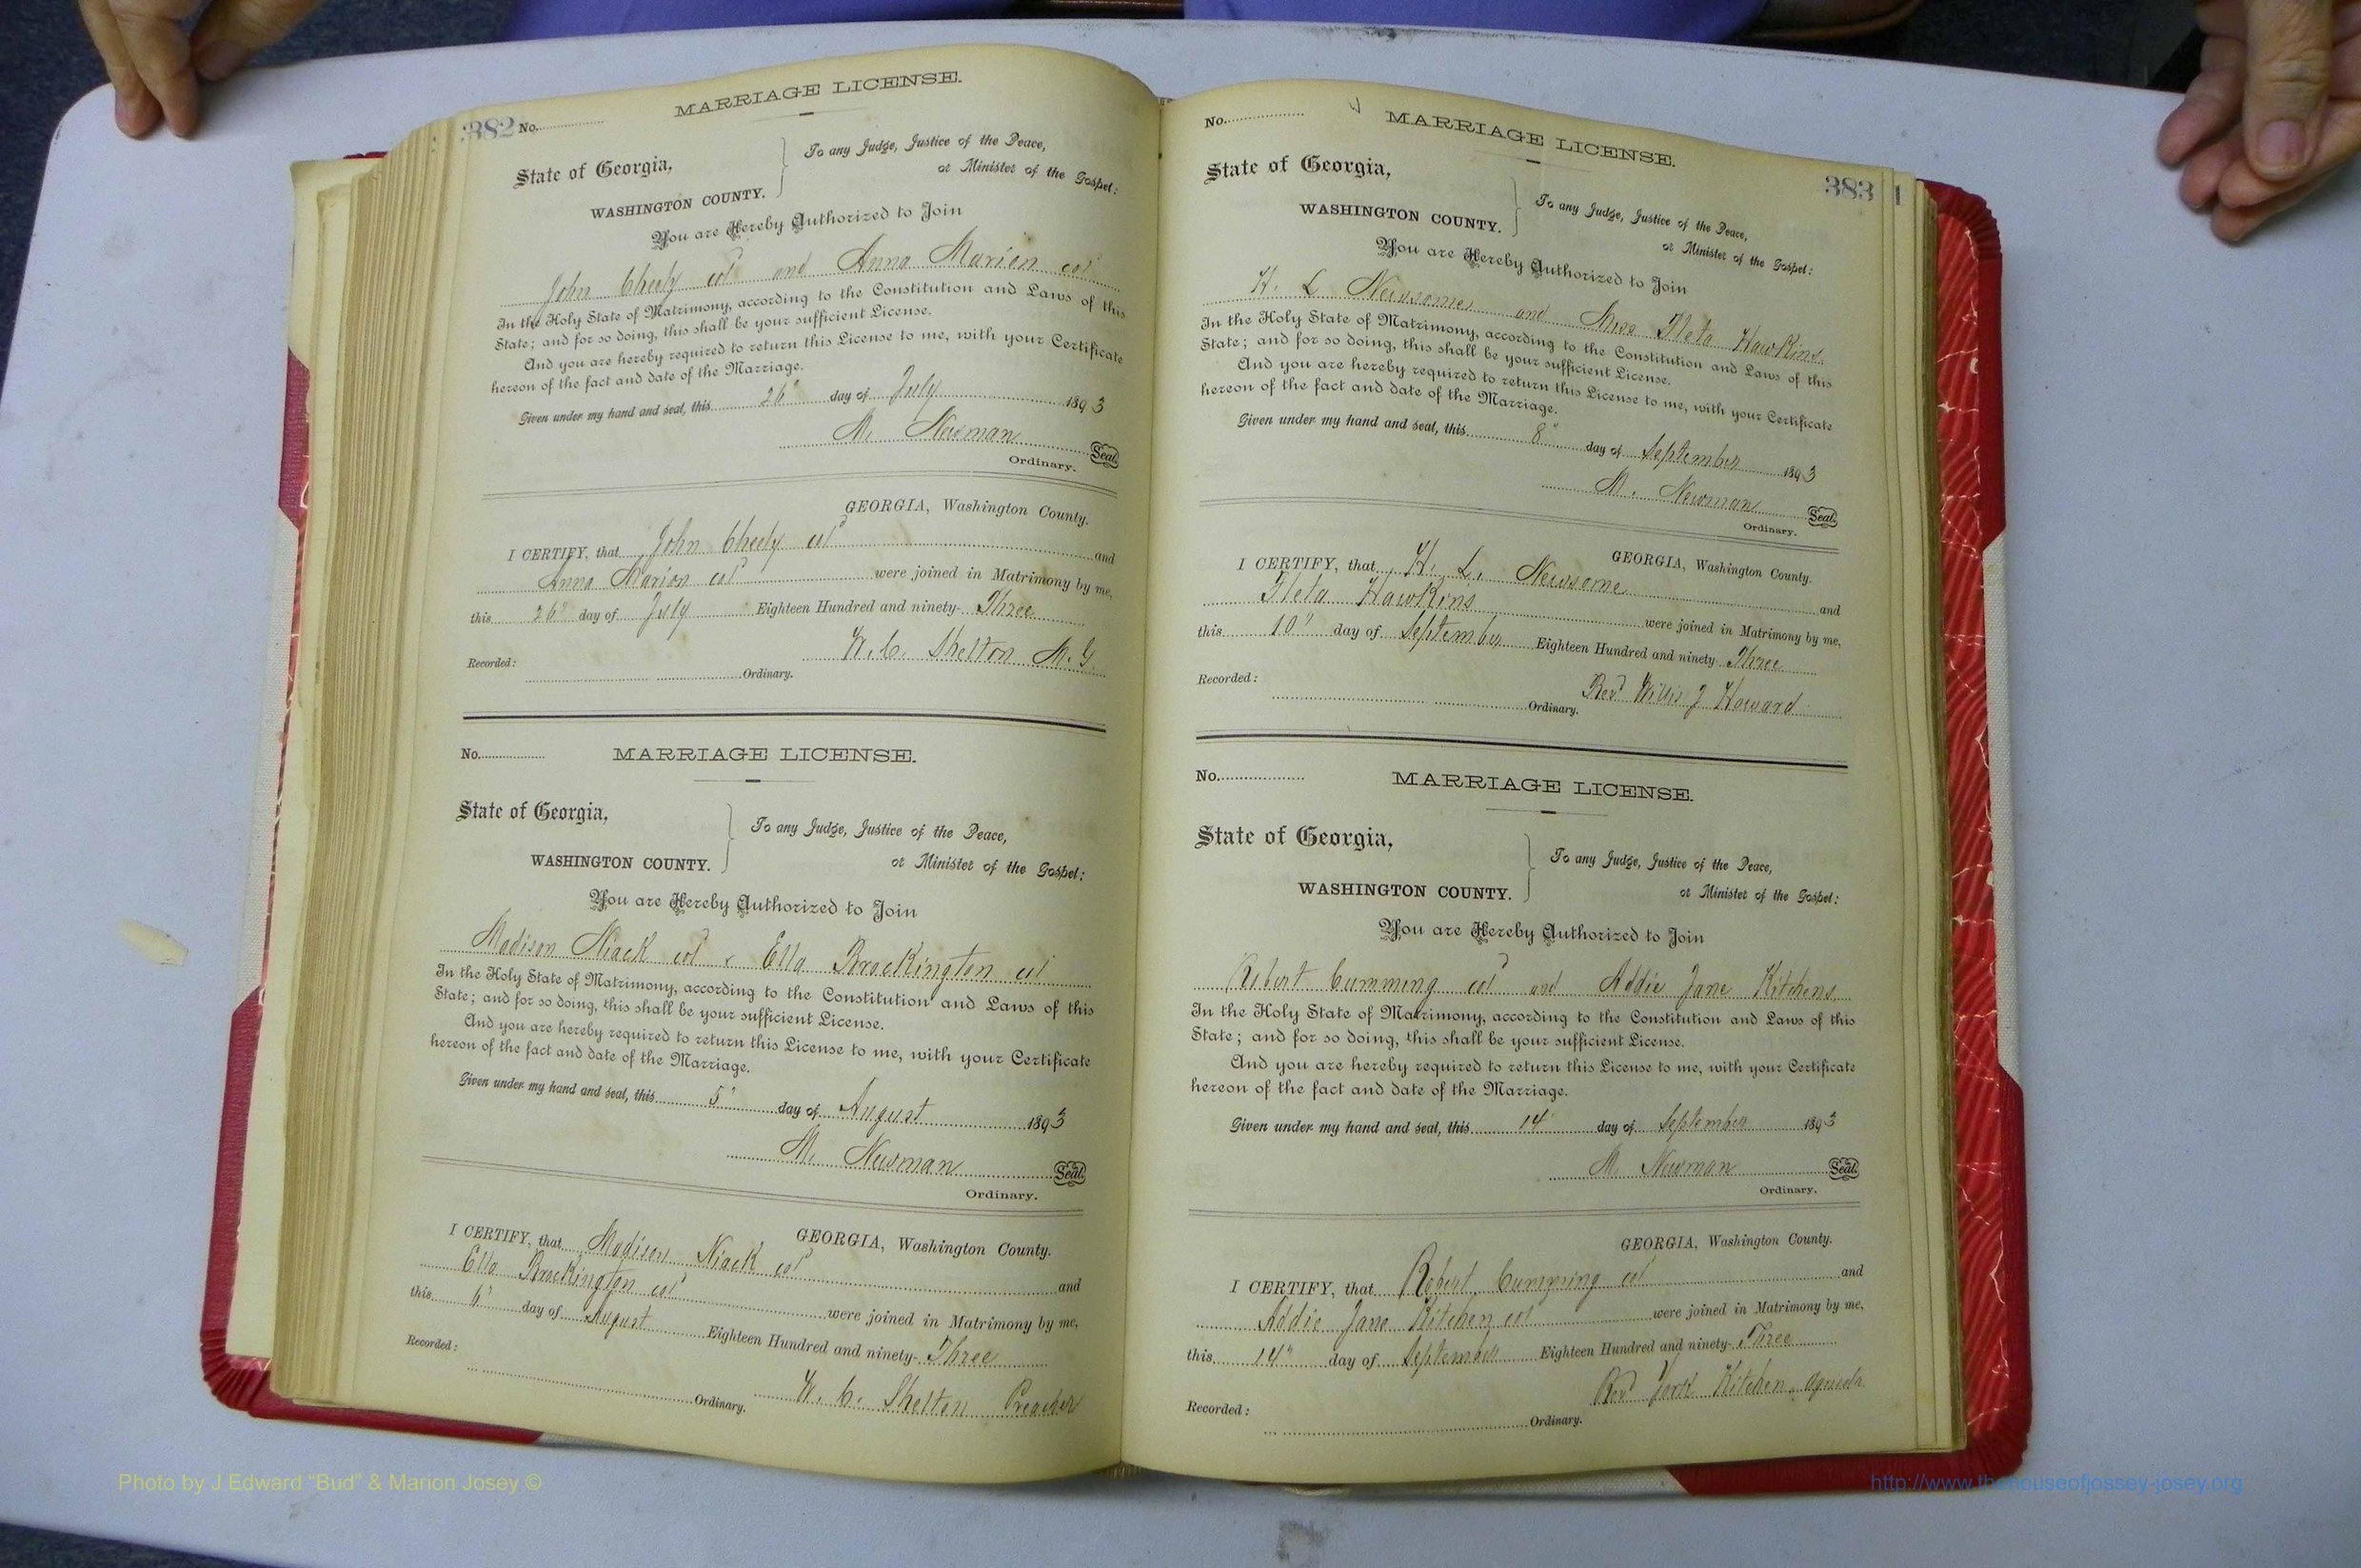 382 No.
MARRIAGE LICENSE.
State of Georgia,
WASHINGTON COUNTY.
To any Judge, Justice of the Peace,
or Minister of the Gospel:
You are Hereby Authorized to Join
John Cheely col and Anna Marion col
In the Holy State of Matrimony, according to the Constitution and Laws of this
State; and for so doing, this shall be your sufficient License.
And you are hereby required to return this License to me, with your Certificate
hereon of the fact and date of the Marriage.
Given under my hand and seal, this 26" day of July 1893
M. Newman
Seal.
Ordinary.
GEORGIA, Washington County.
I CERTIFY, that John Cheely col and
Anna Marion col were joined in Matrimony by me,
this 26" day of July Eighteen Hundred and ninety- Three
W. C. Shelton M. G.
Recorded: Ordinary.
No. MARRIAGE LICENSE.
State of Georgia,
WASHINGTON COUNTY.
To any Judge, Justice of the Peace,
or Minister of the Gospel:
You are Hereby Authorized to Join
Madison Niack col & Ella Brockington col
In the Holy State of Matrimony, according to the Constitution and Laws of this
State; and for so doing, this shall be your sufficient License.
And you are hereby required to return this License to me, with your Certificate
hereon of the fact and date of the Marriage.
Given under my hand and seal, this 5" day of August 1893
M. Newman
Seal.
Ordinary.
GEORGIA, Washington County.
I CERTIFY, that Madison Niack col and
Ella Brockington col were joined in Matrimony by me,
this 6" day of August Eighteen Hundred and ninety- Three
W. C. Shelton Preacher
Recorded: Ordinary.
No. MARRIAGE LICENSE.
383
State of Georgia,
WASHINGTON COUNTY.
To any Judge, Justice of the Peace,
or Minister of the Gospel:
You are Hereby Authorized to Join
H. L Newsome and Miss Fleta Hawkins
In the Holy State of Matrimony, according to the Constitution and Laws of this
State; and for so doing, this shall be your sufficient License.
And you are hereby required to return this License to me, with your Certificate
hereon of the fact and date of the Marriage.
Given under my hand and seal, this 8" day of September 1893
M. Newman
Seal.
Ordinary.
GEORGIA, Washington County.
I CERTIFY, that H. L. Newsome and
Fleta Hawkins were joined in Matrimony by me,
this 10" day of September Eighteen Hundred and ninety Three
Rev Willis J Howard
Recorded: Ordinary.
No. MARRIAGE LICENSE.
State of Georgia,
WASHINGTON COUNTY.
To any Judge, Justice of the Peace,
or Minister of the Gospel:
You are Hereby Authorized to Join
Robert Cumming col and Addie Jane Kitchens
In the Holy State of Matrimony, according to the Constitution and Laws of this
State; and for so doing, this shall be your sufficient License.
And you are hereby required to return this License to me, with your Certificate
hereon of the fact and date of the Marriage.
Given under my hand and seal, this 14" day of September 1893
M. Newman
Seal.
Ordinary.
GEORGIA, Washington County.
I CERTIFY, that Robert Cumming col and
Addie Jane Kitchen col were joined in Matrimony by me,
this 14" day of September Eighteen Hundred and ninety- Three
Rev York Kitchen
Recorded: Ordinary.
Photo by J Edward "Bud" & Marion Josey ©
http://www.thehouseofjossey-josey.org